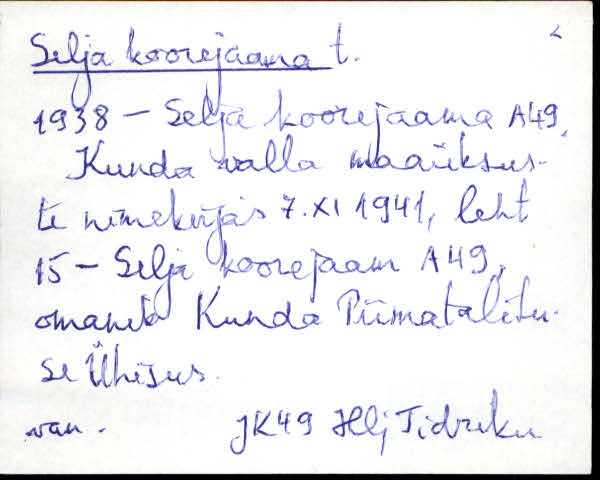 Selja koorejaama t.
1938 – Selja koorejaama A49,
Kunda valla maaüksus-
te nimekirjas 7.XI 1941, leht
15 – Selja koorejaam A49,
omanik Kunda Piimatalitu-
se Ühisus.
van. JK49 Hlj Tidriku